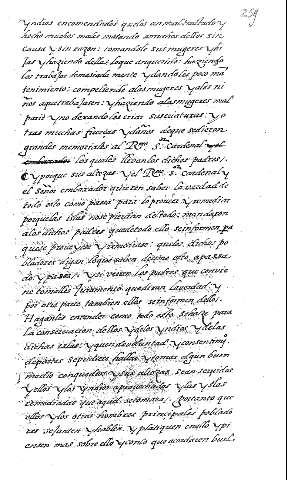 259
yndios encomendados que los an maltratado y
hecho muchos males matando a muchos dellos sin
causa y sin razon: tomandoles sus mugeres y hi
jas y haziendo dellas lo que an querido: haziendo
los trabajar demasiadamente y dandoles poco man
tenimiento: compeliendo a las mugeres y a los ni
ños a que trabajasen: y haziendo a las mugeres mal
parir y no dexando las criar sus criaturas: y o
tras muchas fuerças y daños de que se dieron
grandes memoriales al Rmo. S. Cardenal
los quales llevan los dichos padres.
y porque sus altezas y el Rmo. s. cardenal y
el señor embaxador quieren saber la verdad de
todo esto como passa para lo proveer y remediar
porque las islas no se pierdan del todo: mandaron
a los dichos padres que de todo ello se informen pa
que se provea y remedie: que los dichos po
bladores digan lo que saben de como esto a passa
do y passa: y si vieren los padres que convie
ne tomalles juramento que diran la verdad: y
por otra parte tambien ellos se informen dello.
Haganles entender como todo esto se haze para
la conservacion dellos y de los yndios y de las
dichas islas: y que si de voluntad y consentimio
de partes se pudiere hallar y tomar algun buen
medio con que dios y sus altezas sean servidos
y ellos y los yndios aprovechados y las yslas
remediadas que aquel se tomara. por tanto que
ellos y los otros hombres principales poblado
res se junten y hablen y platiquen en ello y pi
ensen mas sobre ello y con lo que acordaren buel